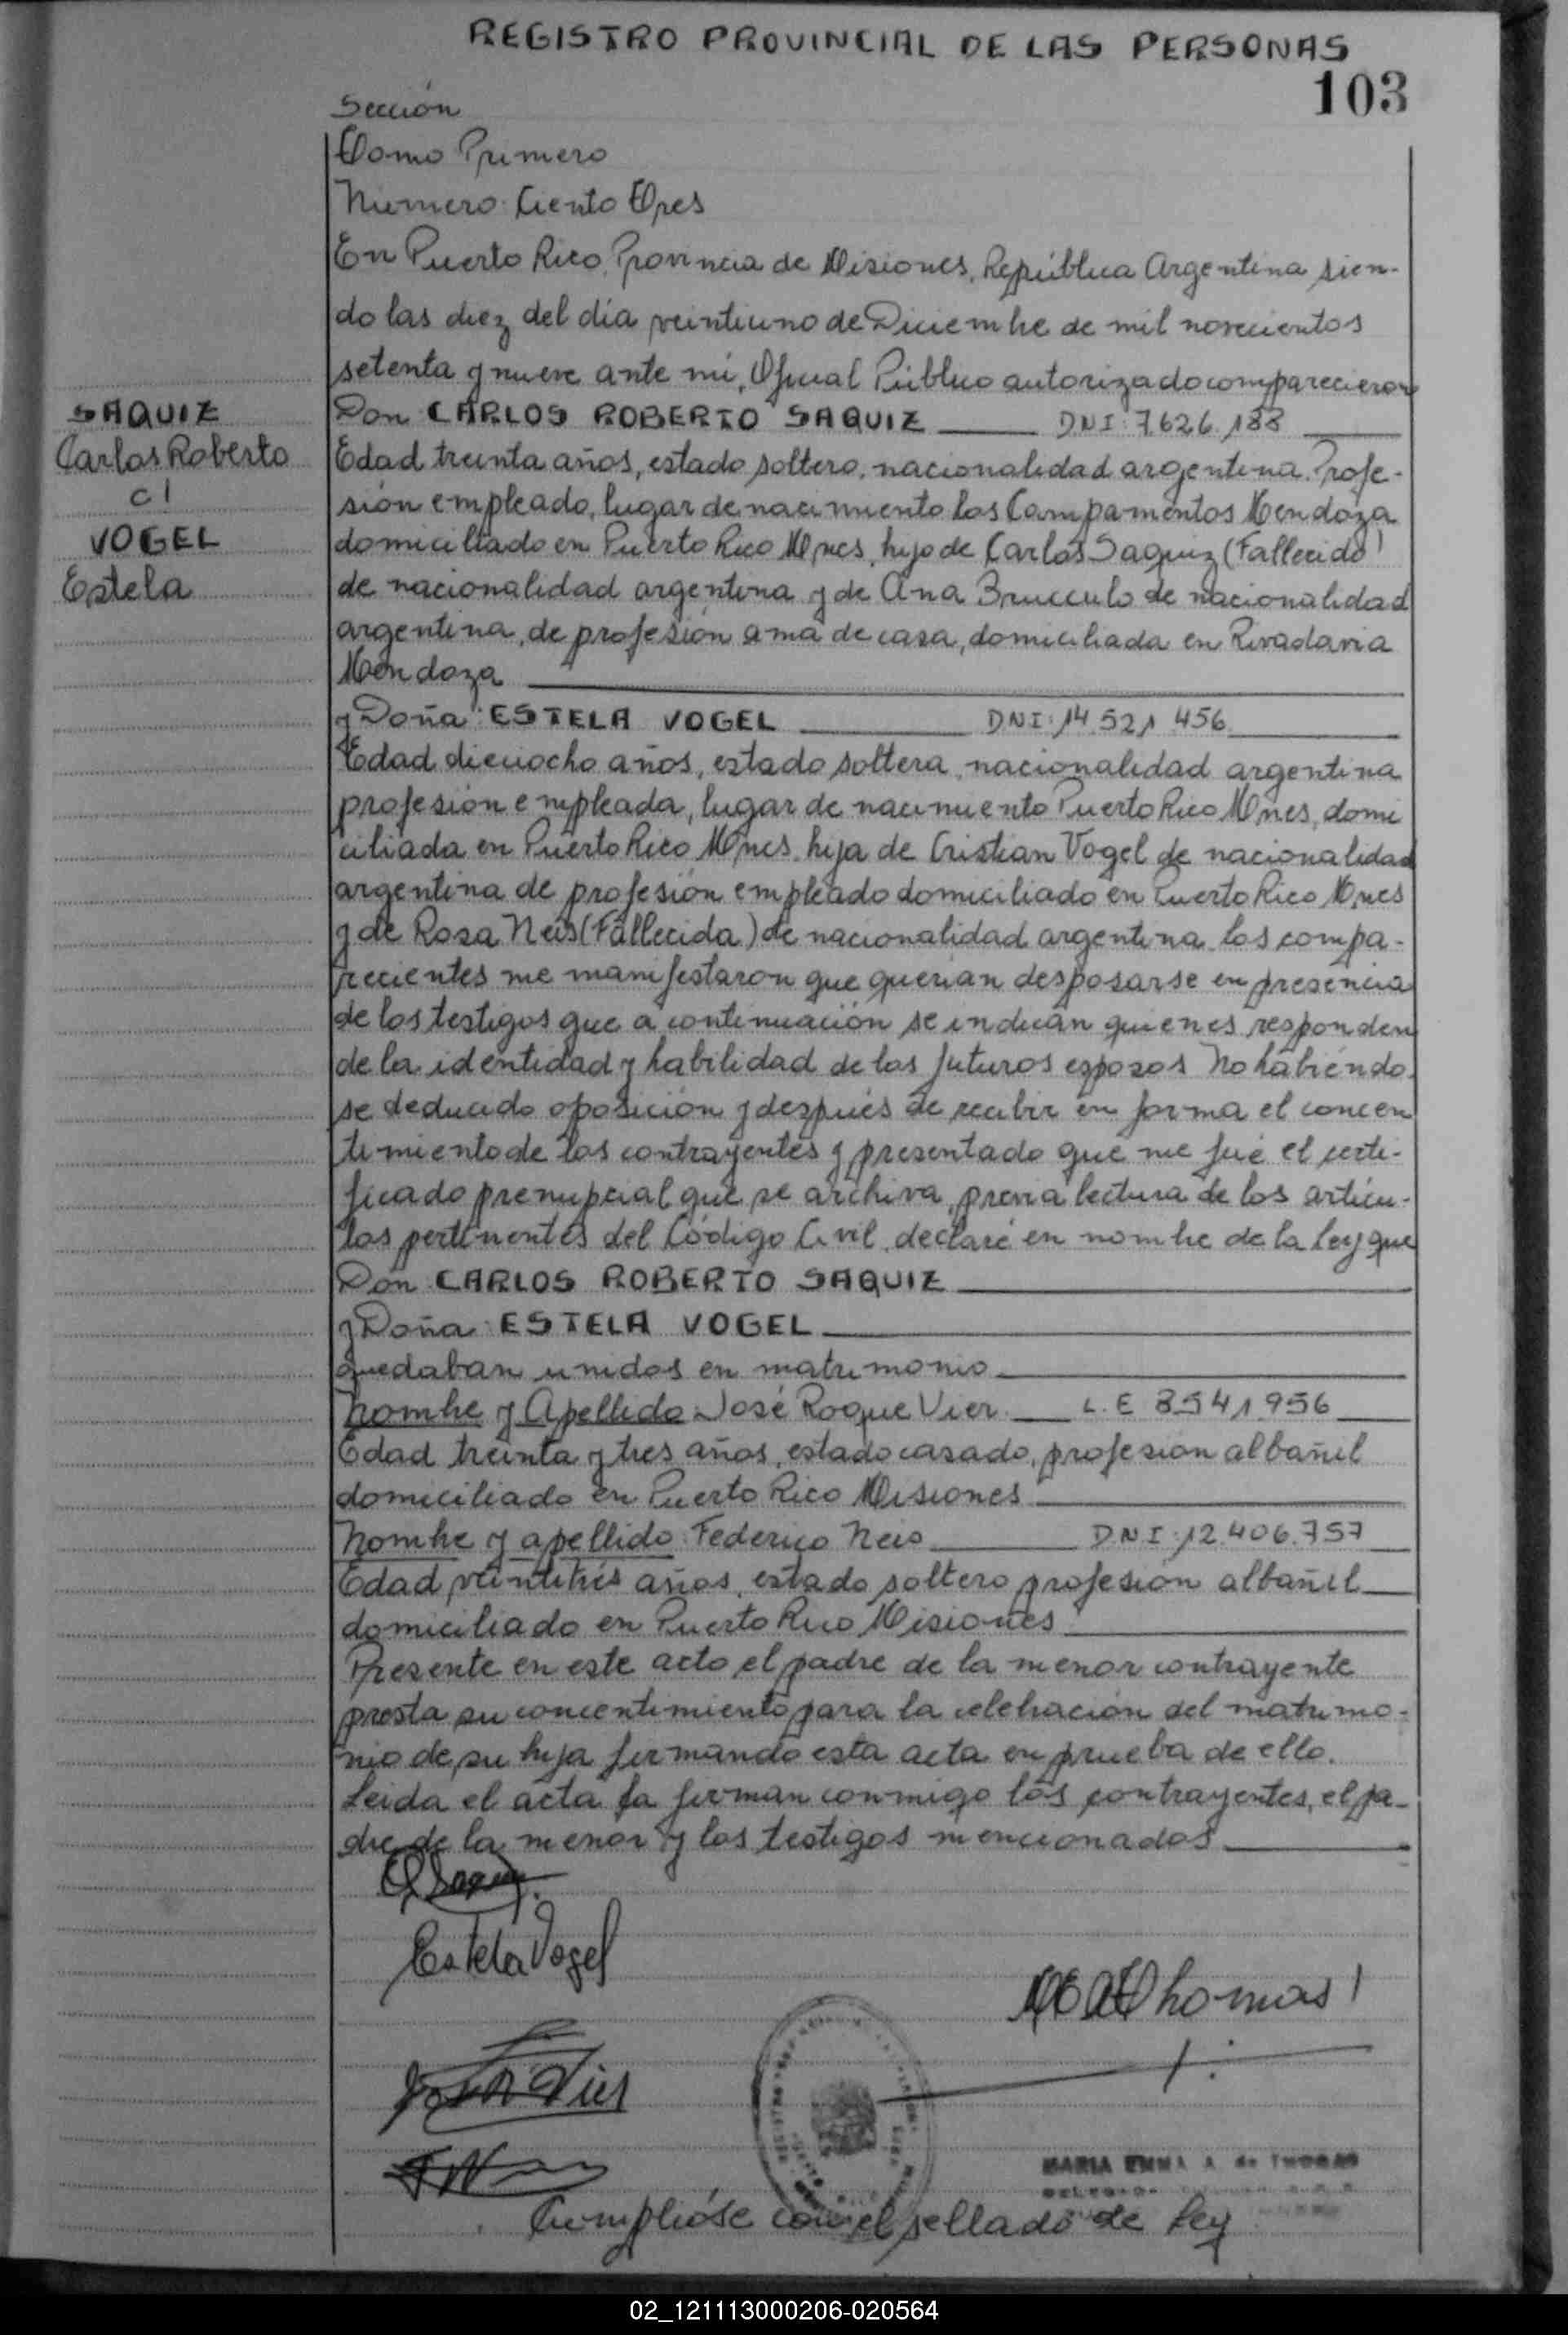 REGISTRO PROVINCIAL DE LAS PERSONAS
103
Sección
Tomo Primero
Numero: Ciento Tres
En Puerto Rico, Provincia de Misiones, República Argentina sien-
do las diez del día veintiuno de Diciembre de mil novecientos
setenta y nueve ante mi, Oficial Público autorizado comparecieron
Don CARLOS ROBERTO SAQUIZ DNI: 7.626.188
Edad treinta años, estado soltero, nacionalidad argentina. Profe-
sión empleado, lugar de nacimiento Los Campamentos Mendoza
domiciliado en Puerto Rico Mnes, hijo de Carlos Saquiz (Fallecido)
de nacionalidad argentina y de Ana Brucculo de nacionalidad
argentina, de profesión ama de casa, domiciliada en Rivadavia
Mendoza
y Doña: ESTELA VOGEL DNI: 14.521.456
Edad dieciocho años, estado soltera, nacionalidad argentina
profesión empleada, lugar de nacimiento Puerto Rico Mnes, domi
ciliada en Puerto Rico Mnes. hija de Cristian Vogel de nacionalidad
argentina de profesión empleado domiciliado en Puerto Rico Mnes
y de Rosa Neis (Fallecida) de nacionalidad argentina. los compa-
recientes me manifestaron que querian desposarse en presencia
de los testigos que a continuación se indican quienes responden
de la identidad y habilidad de los futuros esposos No habiendo
se deducido oposición y después de recibir en forma el concen
timiento de los contrayentes y presentado que me fué el certi-
ficado prenupcial que se archiva, previa lectura de los artícu-
los pertinentes del Código Civil, declaré en nombre de la ley que
Don CARLOS ROBERTO SAQUIZ
y Doña: ESTELA VOGEL
quedaban unidos en matrimonio
Nombre y Apellido José Roque Vier. L.E 8541956
Edad treinta y tres años, estado casado, profesión albañil
domiciliado en Puerto Rico Misiones
Nombre y apellido: Federico Neis DNI: 12.406.757
Edad veintitrés años, estado soltero profesión albañil
domiciliado en Puerto Rico Misiones
Presente en este acto el padre de la menor contrayente
presta su concentimiento para la celebración del matrimo-
nio de su hija firmando esta acta en prueba de ello.
Leida el acta la firman conmigo los contrayentes, el pa-
dre de la menor y los testigos mencionados
SAQUIZ
Carlos Roberto
c/
VOGEL
Estela
Estela Vogel
Thomas
José R Vier
MARIA EMMA A de THOMAS
Cumplióse con el sellado de Ley
02_121113000206-020564